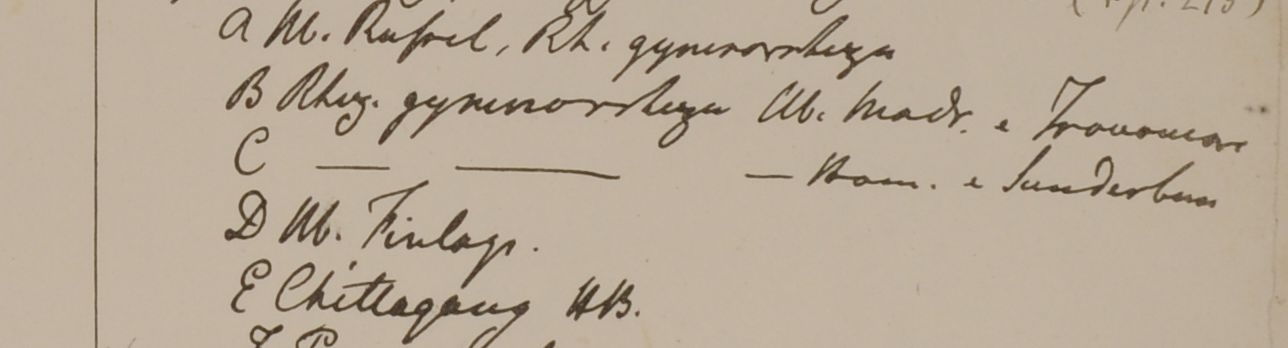 A Hb. Russel, Rh. gymnorrhiza
B Rhiz. gymnorrhiza Hb. Madr. e Travancore
C — — — Ham. e Sunderbun
D Hb. Finlays.
E Chittagong HB.